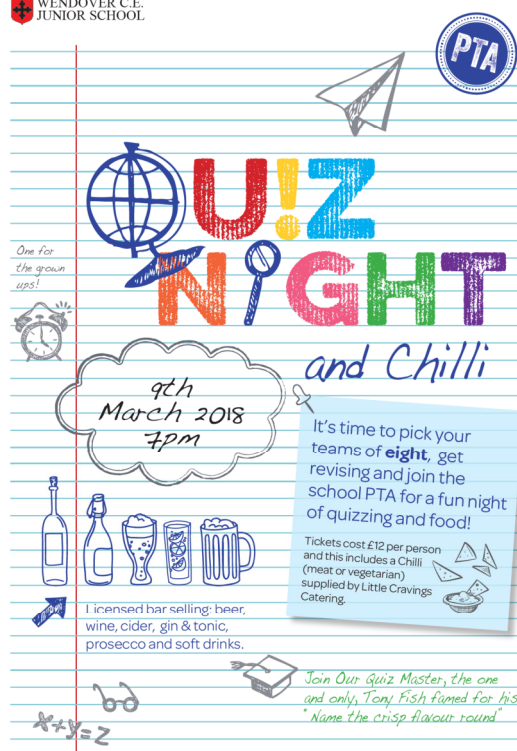 WENDOVER C.E.
JUNIOR SCHOOL
PTA
QU!Z
NIGHT
One for
the grown
ups!
and Chilli
9th
March 2018
7pm
It's time to pick your
teams of eight, get
revising and join the
school PTA for a fun night
of quizzing and food!
Tickets cost £12 per person
and this includes a Chilli
(meat or vegetarian)
supplied by Little Cravings
Catering.
Licensed bar selling: beer,
wine, cider, gin & tonic,
prosecco and soft drinks.
Join Our Quiz Master, the one
and only, Tony Fish famed for his
"Name the crisp flavour round"
x+y=z